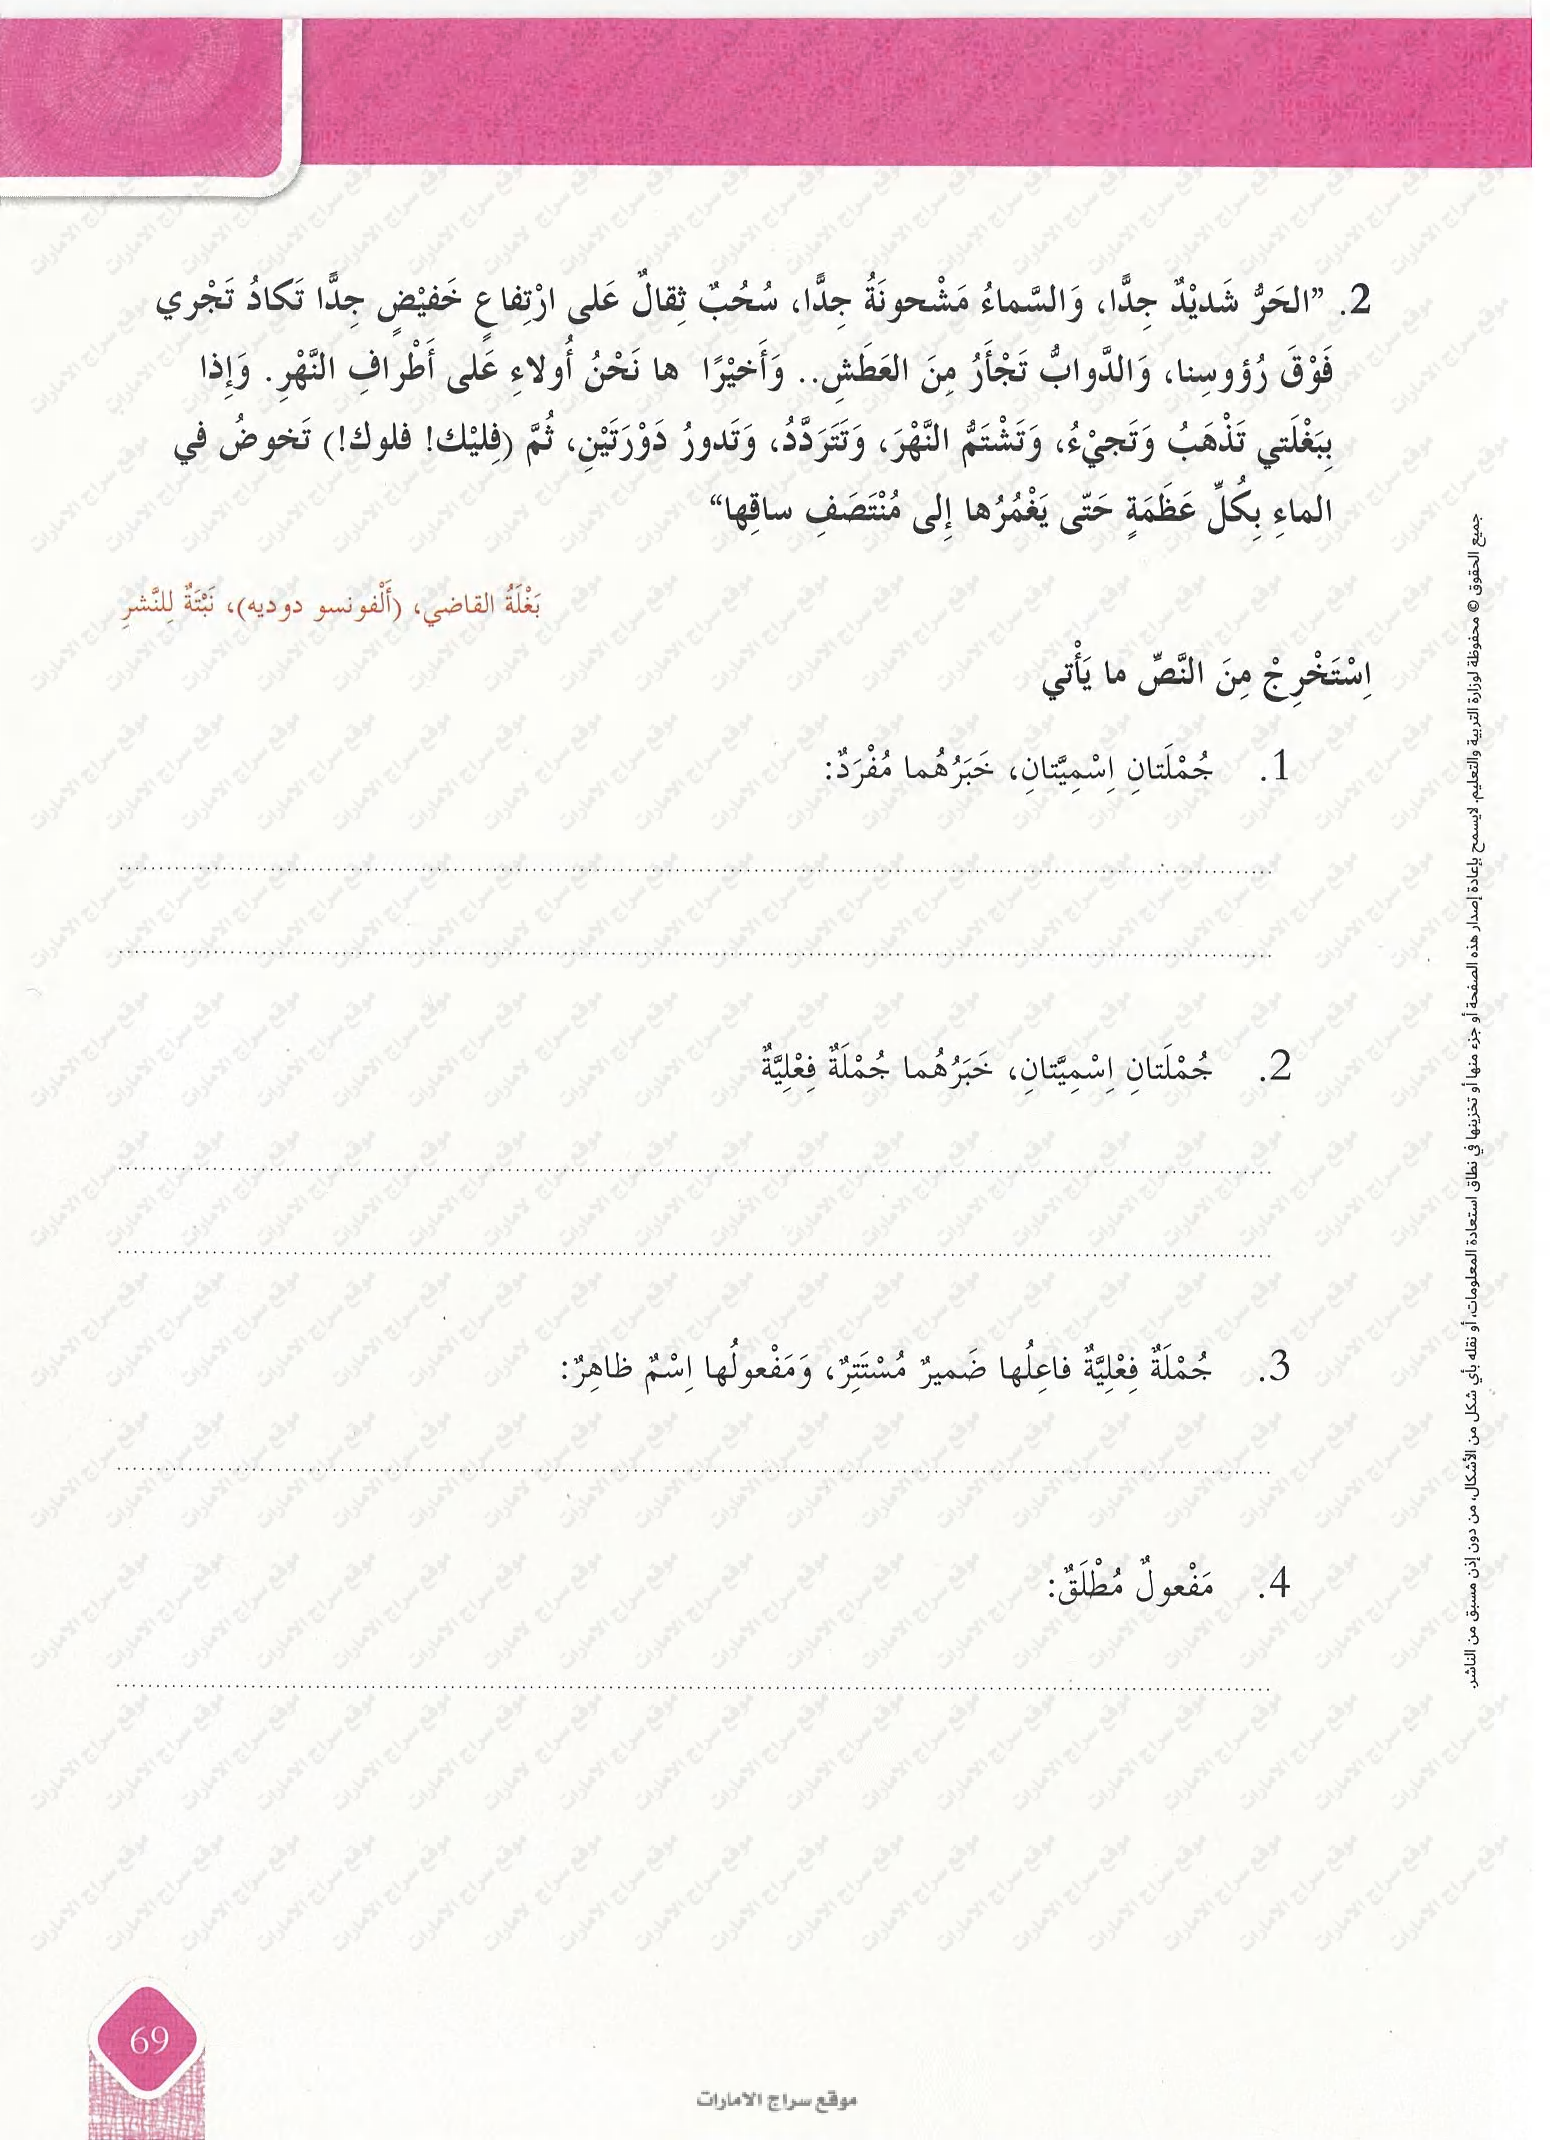 2. ”الحَرُّ شَديْدٌ جِدًّا، وَالسَّماءُ مَشْحونَةُ جِدًّا، سُحُبٌ ثِقالٌ عَلى ارْتِفاعٍ خَفيْضٍ جِدًّا تَكادُ تَجْري
فَوْقَ رُؤوسِنا، وَالدَّوابُّ تَجْأَرُ مِنَ العَطَشِ.. وَأَخيْرًا ها نَحْنُ أُولاءِ عَلى أَطْرافِ النَّهْرِ. وَإِذا
بِبَغْلَتي تَذْهَبُ وَتَجيْءُ، وَتَشْتَمُّ النَّهْرَ، وَتَتَرَدَّدُ، وَتَدورُ دَوْرَتَيْنِ، ثُمَّ (فِليْك! فلوك!) تَخوضُ في
الماءِ بِكُلِّ عَظَمَةٍ حَتّى يَغْمُرُها إِلى مُنْتَصَفِ ساقِها“
بَغْلَةُ القاضي، (أَلْفونسو دوديه)، نَبْتَةٌ لِلنَّشرِ
اِسْتَخْرِجْ مِنَ النَّصِّ ما يَأْتي
1. جُمْلَتانِ اِسْمِيَّتانِ، خَبَرُهُما مُفْرَدٌ:
2. جُمْلَتانِ اِسْمِيَّتانِ، خَبَرُهُما جُمْلَةٌ فِعْلِيَّةٌ
3. جُمْلَةٌ فِعْلِيَّةٌ فاعِلُها ضَميرٌ مُسْتَتِرٌ، وَمَفْعولُها اِسْمٌ ظاهِرٌ:
4. مَفْعولٌ مُطْلَقٌ:
جميع الحقوق © محفوظة لوزارة التربية والتعليم. لايسمح بإعادة إصدار هذه الصفحة أو جزء منها أو تخزينها في نطاق استعادة المعلومات، أو نقله بأي شكل من الأشكال، من دون إذن مسبق من الناشر.
69
موقع سراج الامارات